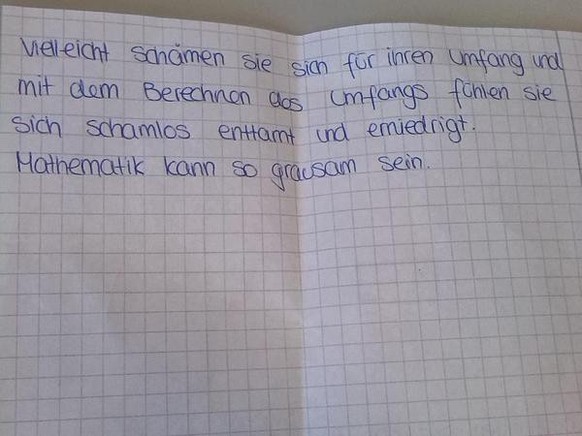 Vielleicht schämen sie sich für ihren Umfang und
mit dem Berechnen des Umfangs fühlen sie
sich schamlos enttarnt und erniedrigt.
Mathematik kann so grausam sein.